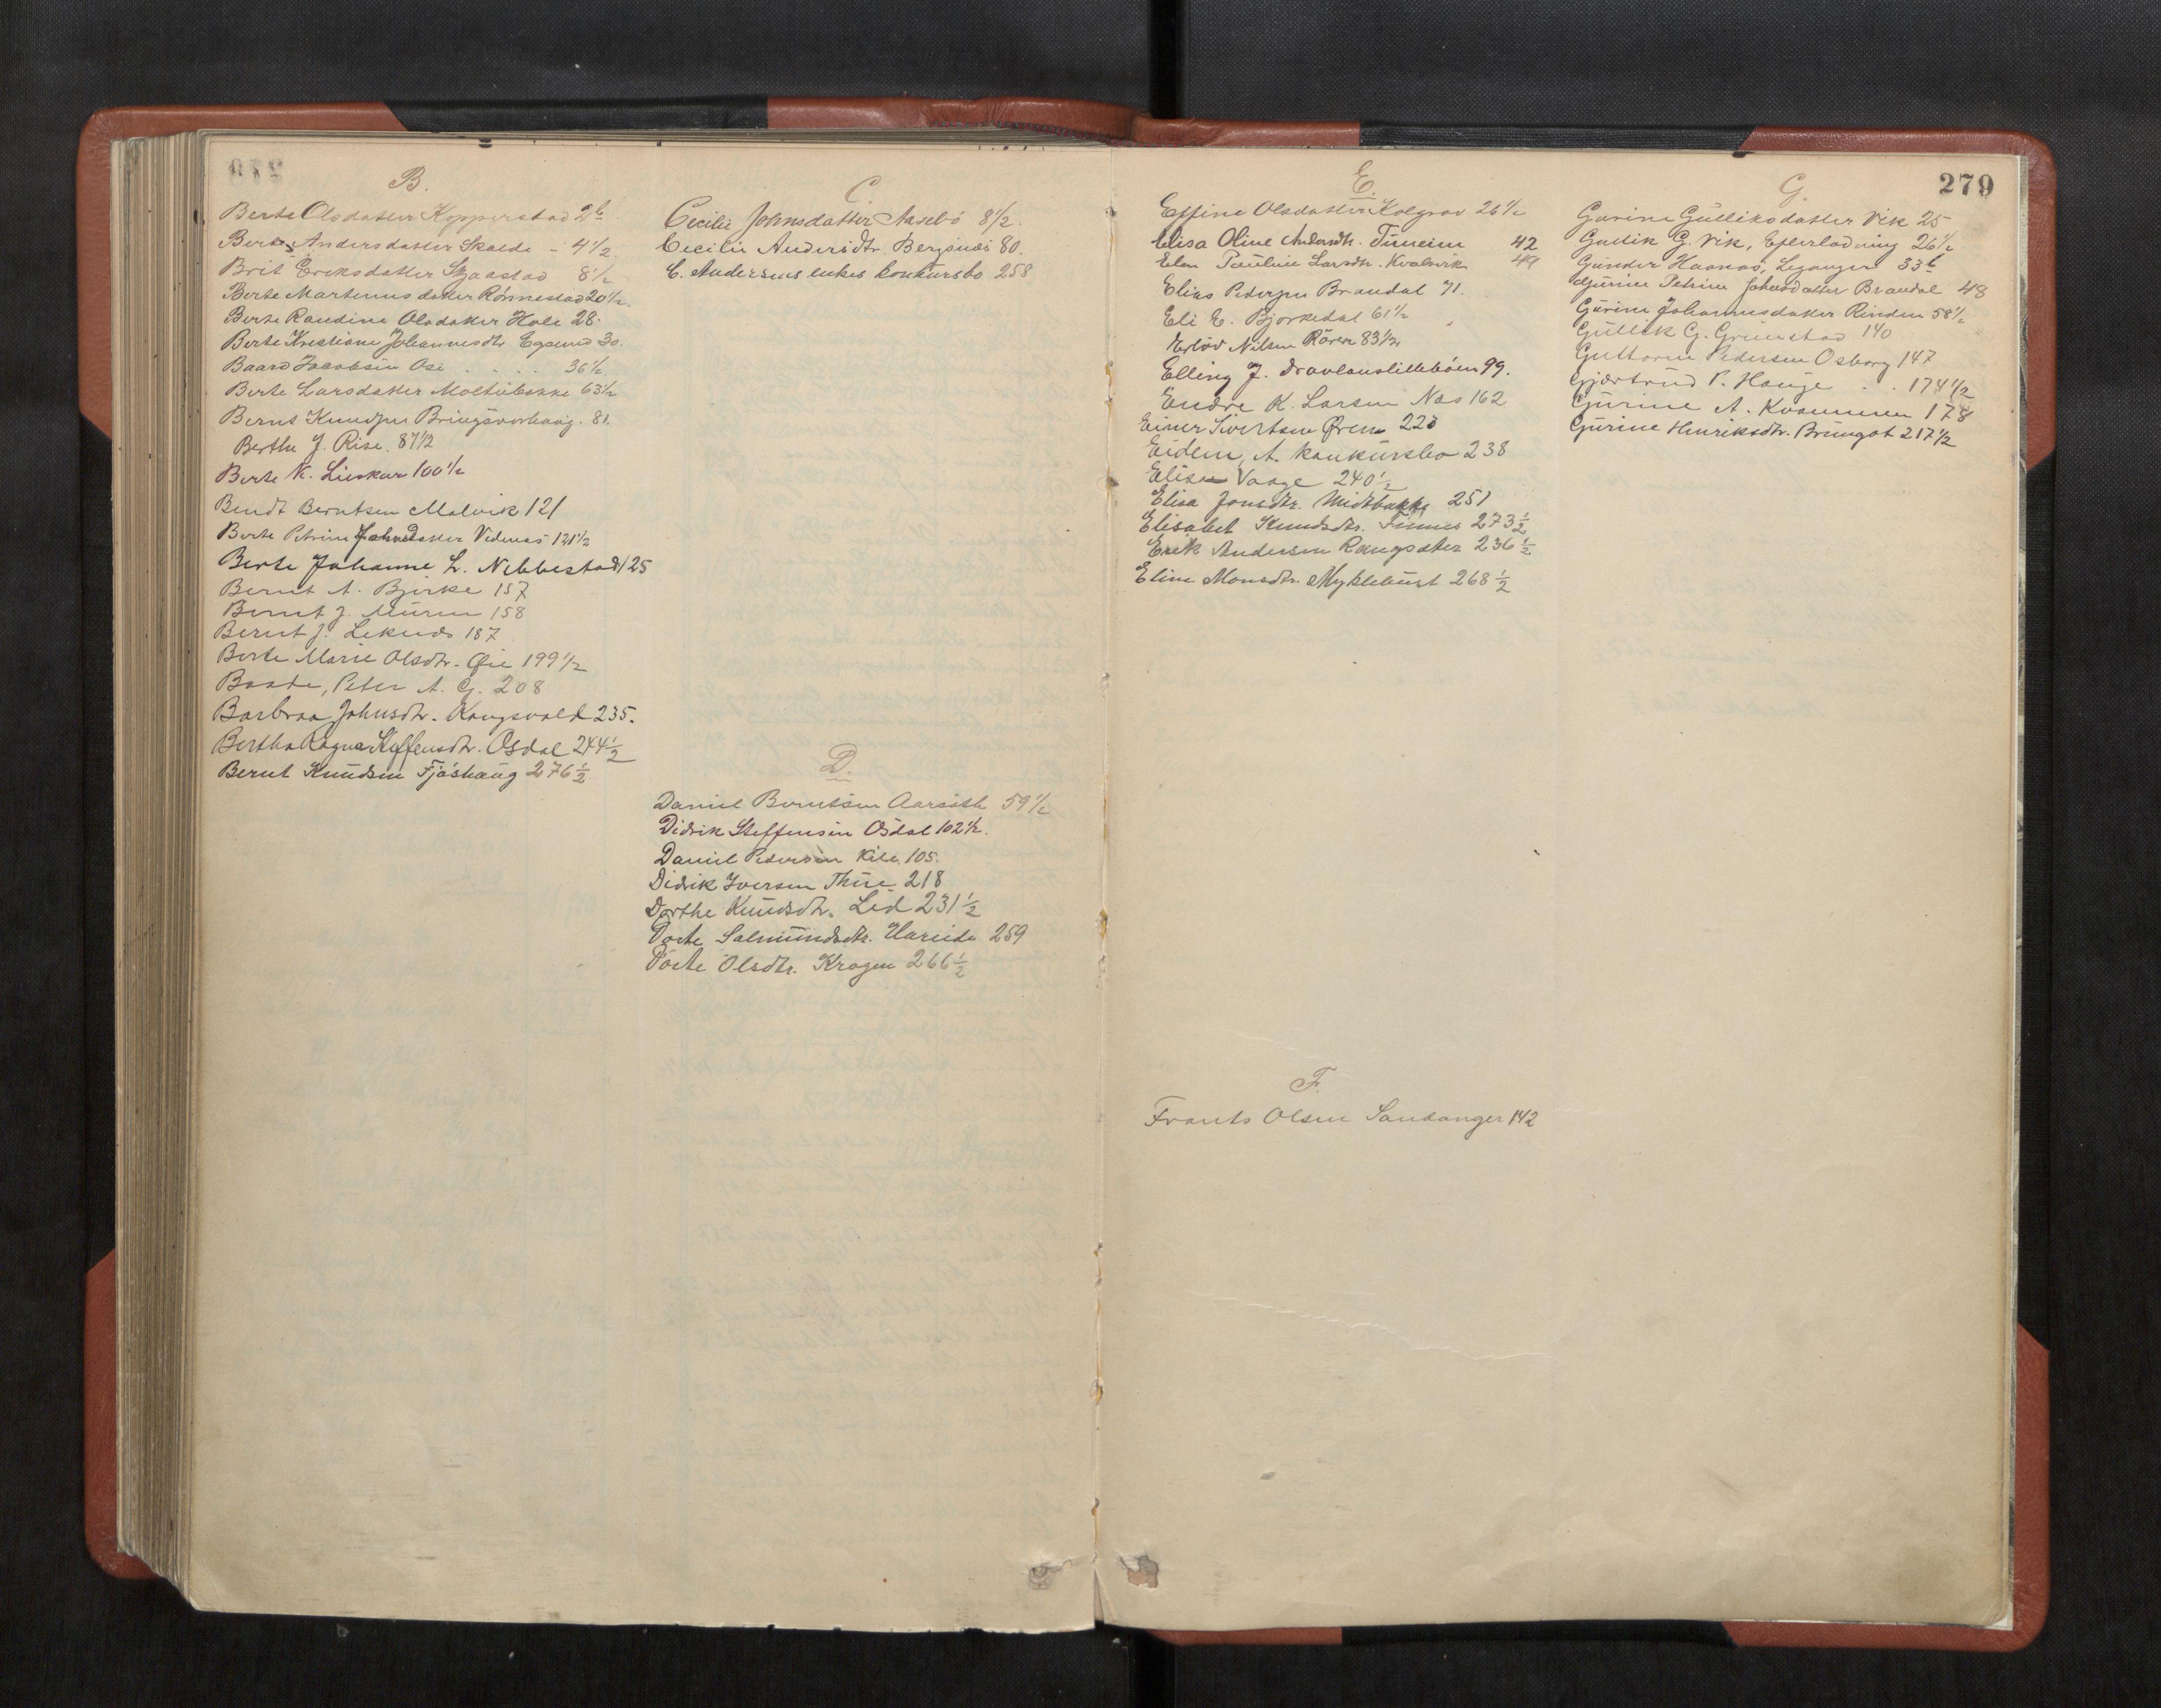 B.
Berte Olsdatter Kopperstad 2b
Berte Andersdatter Skalde - 4 1/2
Brit Eriksdatter Skaastad 8 1/2
Berte Martinusdatter Rönnestad 20 1/2.
Berte Raudine Olsdatter Hole 28.
Berte Kristiane Johannesdtr Egsund 30.
Baard Jacobsen Ose . . . . 36 1/2
Berte Larsdatter Moltubakke 63 1/2
Bernt Knudsen Bringsvorhaug. 81.
Berthe J. Rise. 87 1/2
Berte N. Liaskar 100 1/2
Bendt Berntsen Malvik 121
Berte Petrine Johnsdatter Videnæs 121 1/2
Berte Johanne L. Nebbestad 125
Bernt A. Bjerke 157
Bernt J. Muren 158
Bernt J. Leknæs 187
Berte Marie Olsdtr. Øie 199 1/2
Baade, Peter A. G. 208
Barbraa Johnsdtr. Kongsvold 235.
Bertha Ragna Steffensdtr. Osdal 244 1/2
Bernt Knudsen Fjøshaug 276 1/2
C.
Cecilie Johnsdatter Aasebö 8 1/2.
Cecilie Andersdtr. Bergsnæs 80.
C. Andersens enkes konkursbo 258
D.
Daniel Berntsen Aarseth 59 1/2
Didrik Steffensen Osdal 102 1/2.
Daniel Pedersen Kile. 105.
Didrik Iversen Thue 218
Dorthe Knudsdtr. Lid 231 1/2
Dorte Salmundsdtr. Hareide 259
Dorte Olsdtr. Kragen 266 1/2
E.
Effine Olsdatter Kolgrov 26 1/2
Elisa Oline Andersdtr. Fureim 42
Elen Pauline Larsdtr. Kvalsvik 49
Elias Pedersen Brandal 71.
Eli E. Bjorkedal 61 1/2
Erlöv Nilsen Rören 83 1/2
Elling J. Dravlauslillebøen 99.
Endre K. Larsen Næs 162
Einer Sivertsen Øren 223
Eidem, A. konkursbo 238
Elise Vaage 240 1/2
Elisa Jonsdtr. Midtbakke 251
Elisabet Knudsdtr. Finnes 273 1/2
Erik Andersen Rangsæter 236 1/2
Eline Monsdtr. Myklebust 268 1/2
F.
Frants Olsen Sandanger 142
279
G.
Gurine Gulliksdatter Vik 25
Gullik G. Vik, Efterlodning 26 1/2
Gunder Haanæs, Leganger 33b
Gurine Petrine Johnsdatter Brandal 48
Gurine Johannesdatter Rinden 58 1/2
Gullik G. Grimstad 140
Guttorm Pedersen Osborg 147
Gjærtrud P. Hauge . . 174 1/2
Gurine A. Kvammen 178
Gurine Henriksdtr. Brungot 217 1/2